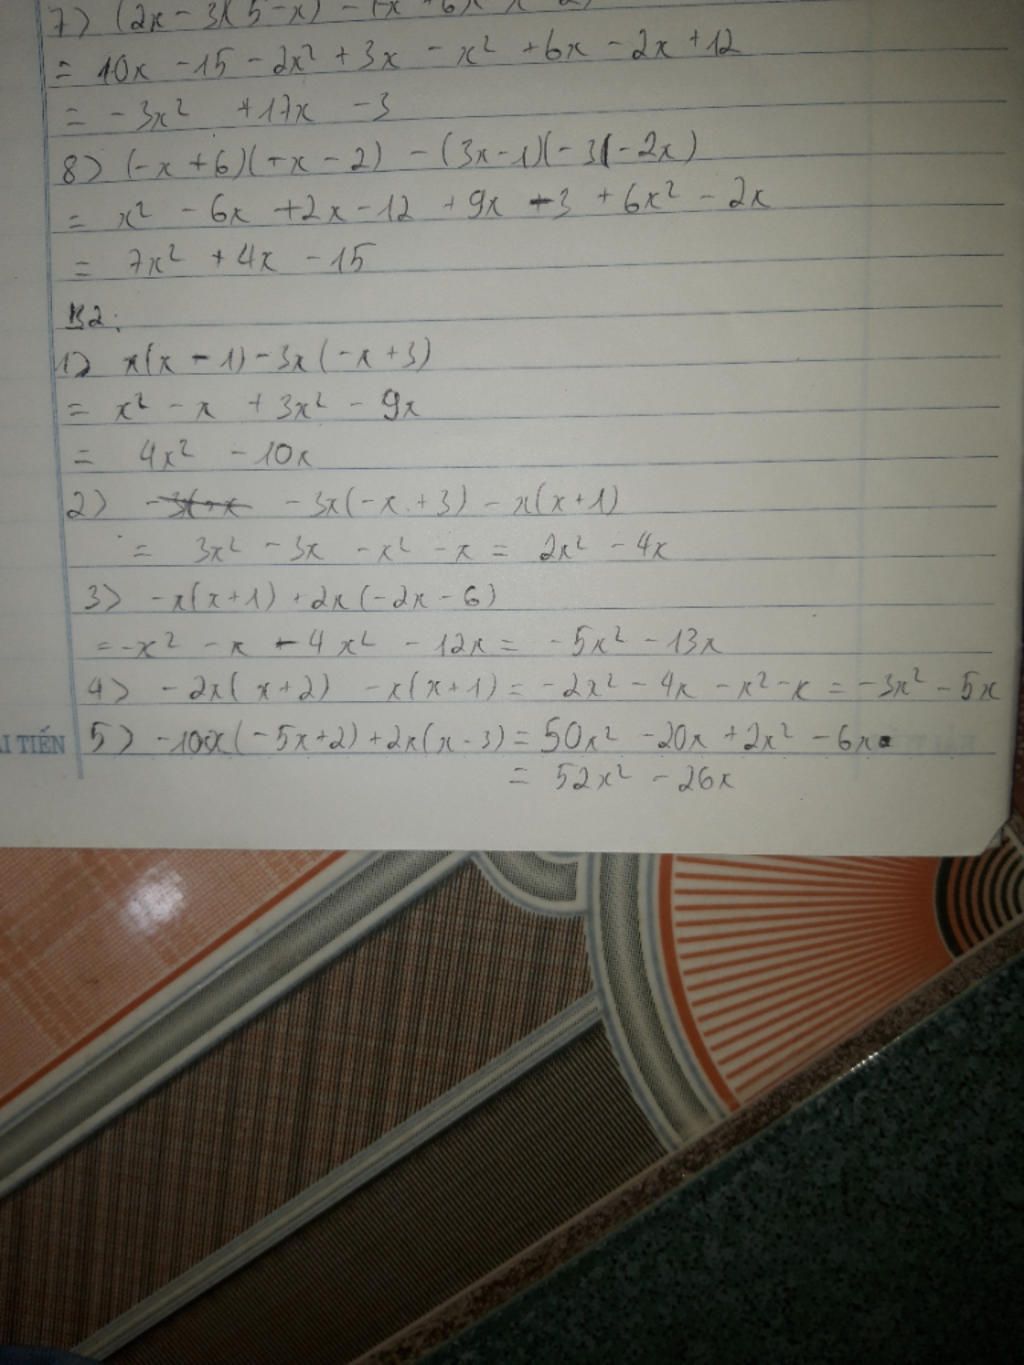 7) (2x - 3)(5 - x) -
= 10x - 15 - 2x² + 3x - x² + 6x - 2x + 12
= - 3x² + 17x - 3
8) (-x + 6)(-x - 2) - (3x - 1)(-3 - 2x)
= x² - 6x + 2x - 12 + 9x - 3 + 6x² - 2x
= 7x² + 4x - 15
B2:
1) x(x - 1) - 3x(-x + 3)
= x² - x + 3x² - 9x
= 4x² - 10x
2) -3x(-x + 3) - x(x + 1)
= 3x² - 3x - x² - x = 2x² - 4x
3) -x(x + 1) + 2x(-2x - 6)
= -x² - x - 4x² - 12x = -5x² - 13x
4) -2x(x + 2) - x(x + 1) = -2x² - 4x - x² - x = -3x² - 5x
5) -10x(-5x + 2) + 2x(x - 3) = 50x² - 20x + 2x² - 6x
= 52x² - 26x
TIẾN